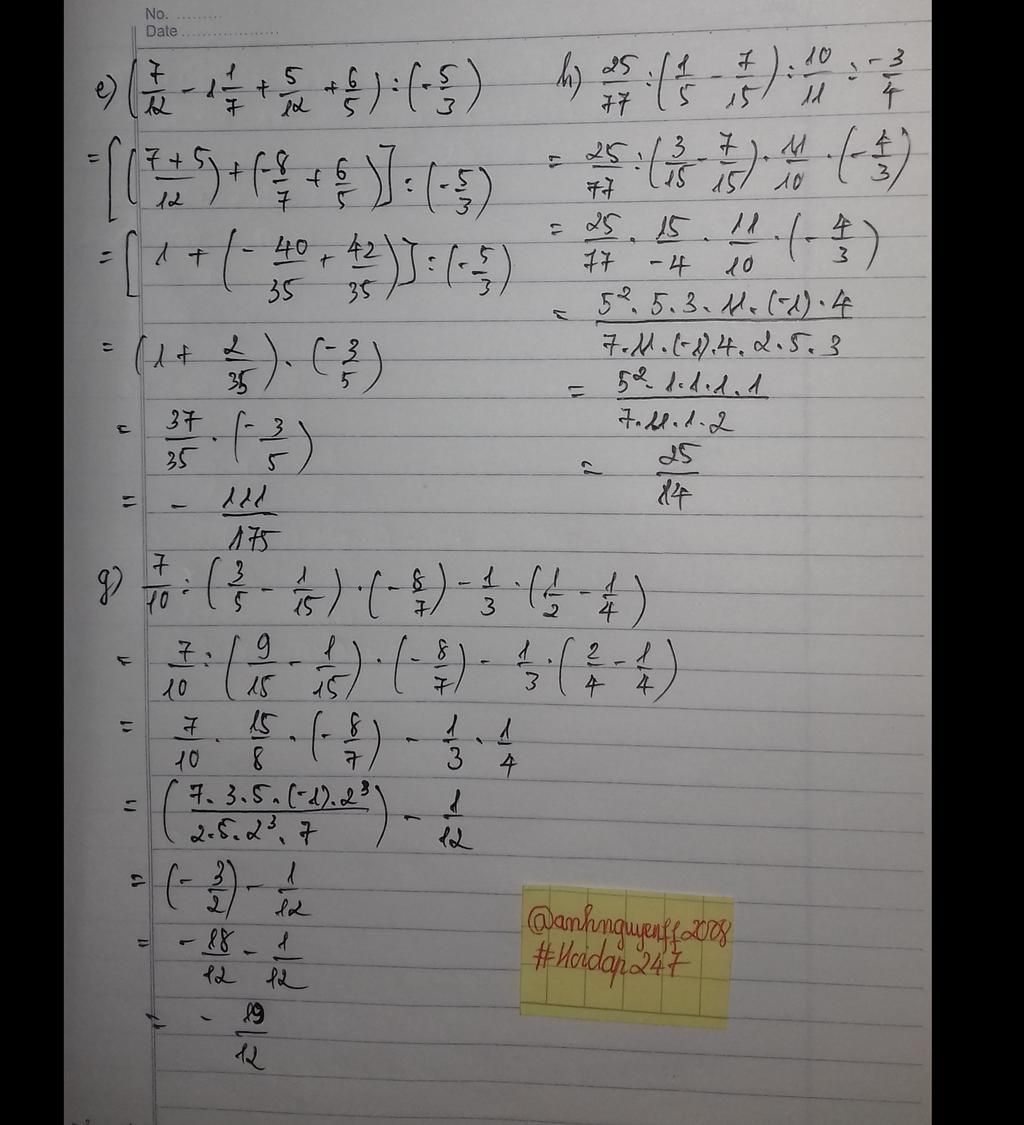 No. ........
Date ..................
e) (7/12 - 1 1/7 + 5/12 + 6/5) : (-5/3)
= [((7+5)/12) + (-8/7 + 6/5)] : (-5/3)
= [1 + (-40/35 + 42/35)] : (-5/3)
= (1 + 2/35) . (-3/5)
= 37/35 . (-3/5)
= - 111/175
h) 25/77 : (1/5 - 7/15) : 10/11 : -3/4
= 25/77 : (3/15 - 7/15) . 11/10 . (-4/3)
= 25/77 . 15/-4 . 11/10 . (-4/3)
= 5² . 5 . 3 . 11 . (-1) . 4 / 7 . 11 . (-1) . 4 . 2 . 5 . 3
= 5² . 1 . 1 . 1 . 1 / 7 . 11 . 1 . 2
= 25/14
g) 7/10 : (3/5 - 1/15) . (-8/7) - 1/3 . (1/2 - 1/4)
= 7/10 : (9/15 - 1/15) . (-8/7) - 1/3 . (2/4 - 1/4)
= 7/10 . 15/8 . (-8/7) - 1/3 . 1/4
= (7 . 3 . 5 . (-1) . 2³ / 2 . 5 . 2³ . 7) - 1/12
= (-3/2) - 1/12
= -18/12 - 1/12
= - 19/12
@anhnguyenff2008
#Hoidap247